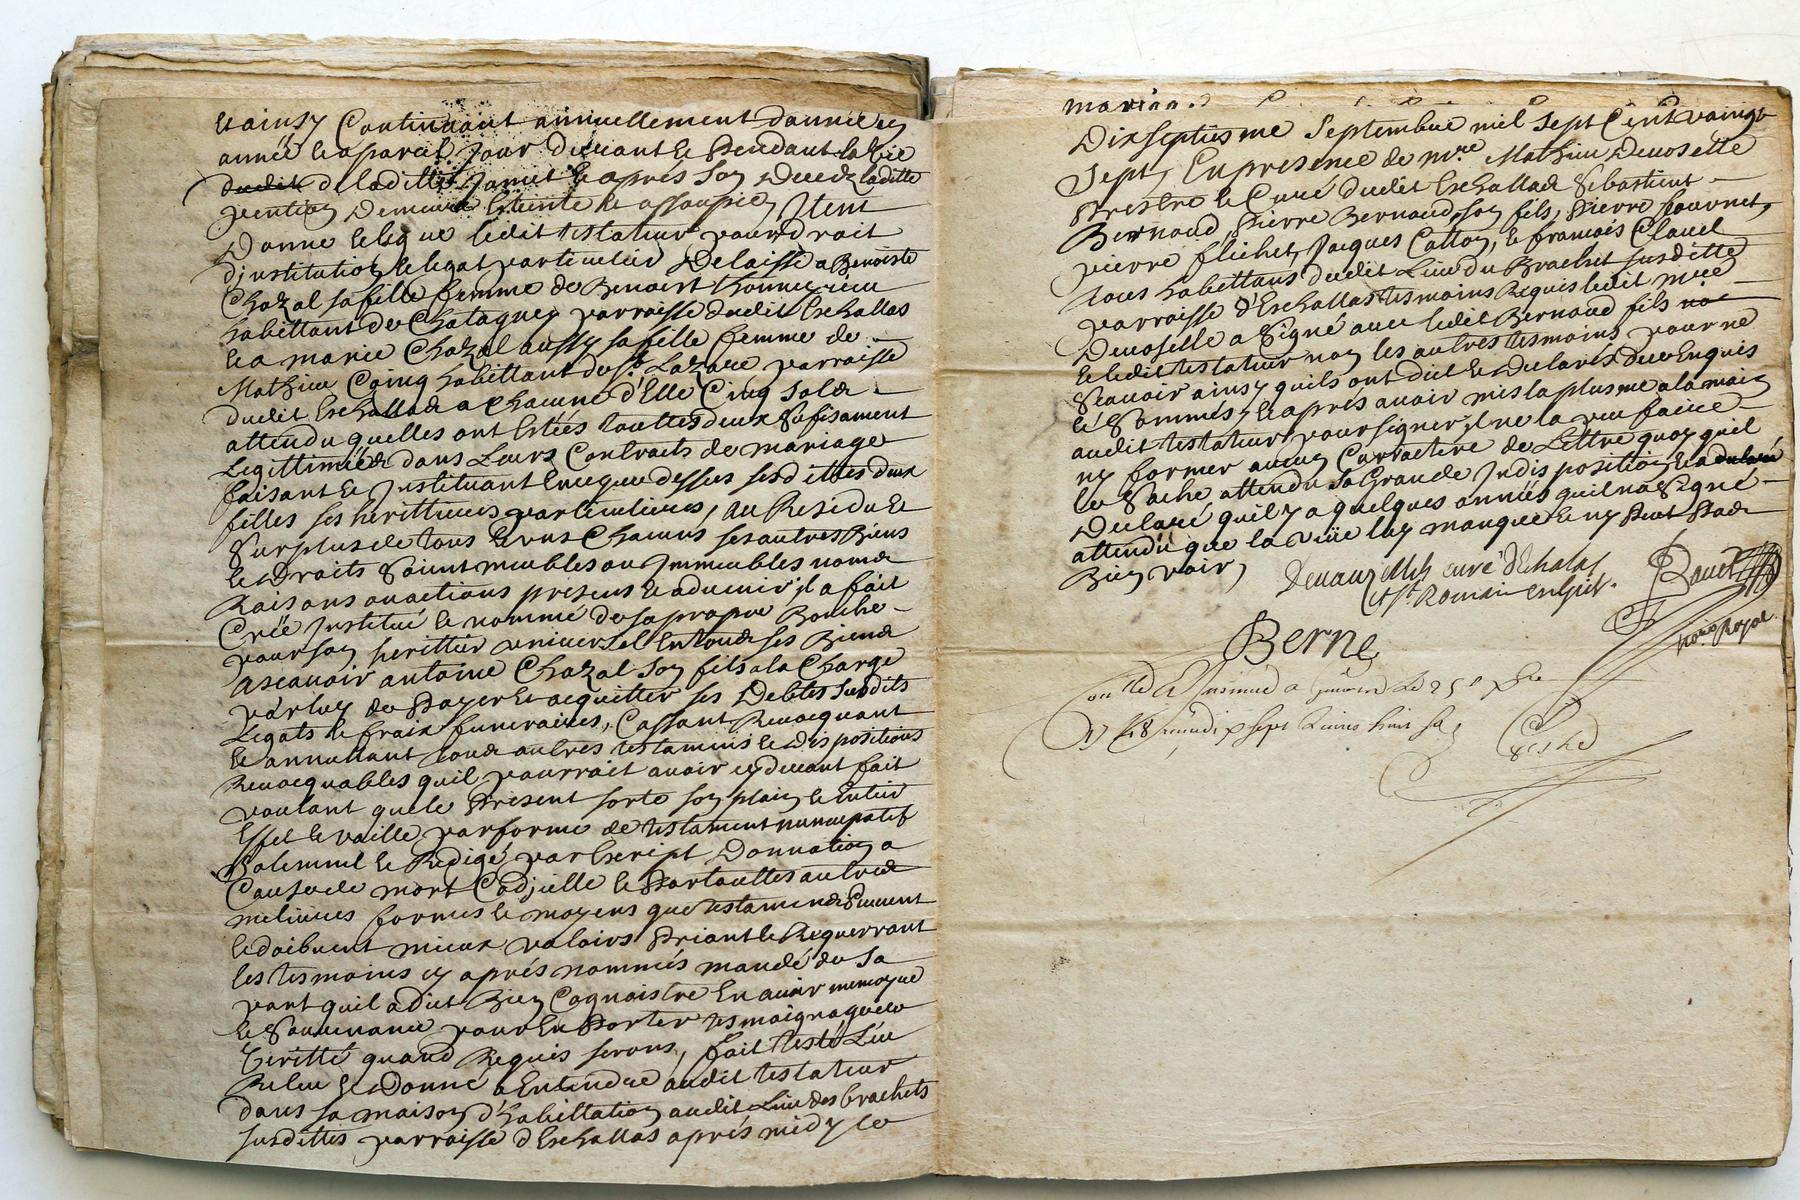 et ainsy Continuant annuellement d'année en
année et a pareil Jour durant et Pendant la Vie
dudit de laditte Jamet et après Son Deceds laditte
pention Demeurera Eteinte et assoupie, Item
Donne et legue ledit testateur pour droit
d'institution et legat particulier Delaissé a Benoiste
Chazal sa fille femme de Benoist
habittant de Chataguey parroisse dudit Eschallas
et a marie Chazal aussy sa fille femme de
Mathieu Coing habittant de St. Lazare parroisse
dudit Eschallas a Chacune d'Elle Cinq Solds
attendu quelles ont Estées touttes deux Sufisament
Legittimées dans Leurs Contracts de mariage
faisant et Instituant Encequedessus sesdittes deux
filles ses herittieres particulieres, au Residu et
Surplus de tous et uns Chacuns ses autres Biens
et Droits Soint meubles ou Immeubles noms
Raisons ou actions presens et advenir il a fait
Créé Institué et nommé de sa propre Bouche
pour son herittier universel En tous ses Biens
ascauoir antoine Chazal Son fils a la Charge
par luy de Payer et acquitter ses Debtes Susdits
Legats et fraix funeraires, Cassant Reuocquant
et annullant tous autres testamens et Dispositions
Reuocquables quil pourroit auoir cy deuant fait
voulant que le Present sorte son plain et Entier
Effet et vaille par forme de testament nuncupatif
Solemnel et Redigé par Escript Donnation a
Cause de mort Codicille et Partouttes autres
melieures formes et moyens que testamens Peuuent
et doibuent mieux valoirs Priant et Requerrant
les tesmoins cy aprés nommés mandé de Sa
part quil a dict Bien Cognoistre En auoir memoyre
et Souuenance pour En Porter tesmoignage de
Veritté quand Requis seront, fait testé Leu
Releu et Donné a Entendre audit testateur
dans sa maison d'habittation audit Lieu des brachets
susdittes parroisse d'Eschallas aprés midy le
Dixseptiesme Septembre mil Sept Cent vaingt
Sept, En presence de mre. Mathieu Deuoselle
Prestre et Curé dudit Eschallas Sebastient
Bernoud, Pierre Bernoud son fils, Pierre fournet,
pierre flichet, Jacques Catton, et francois Clauel
tous habittans dudit Lieu du Brachet susditte
parroisse d'Eschallas tesmoins Requis ledit mre
Deuoselle a Signé auec ledit Bernoud fils
et ledit testateur non les autres tesmoins pour ne
Scauoir ainsy quils ont dict et declaré de ce Enquis
et Sommés, et aprés auoir mis la plusme a la main
audit testateur pour signer il ne la peu faire
ny former aucun Carractere de Lettre quoy quil
le Sache attendu sa Grande Indisposition et a
Declaré quil y a quelques années quil na Signé
attendu que la viüe luy manque et ny Peut Pas
Bien voir,
curé d'Echalas
et St. Romain en Gier.
Berne
no.re Royal